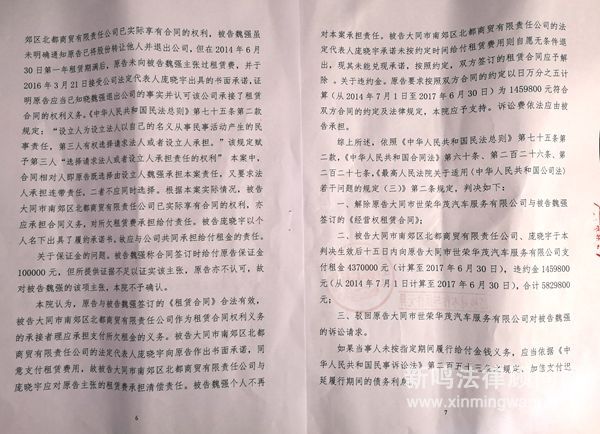 郊区北都商贸有限责任公司已实际享有合同的权利，被告魏强虽
未明确通知原告已将股份转让他人并退出公司，但在 2014 年 6 月
30 日第一年租赁期满后，原告未向被告魏强主张过租赁费，并于
2016 年 3 月 21 日接受公司法定代表人庞晓宇出具的书面承诺，证
明原告应当已知晓魏强退出公司的事实并认可该公司承接了租赁
合同的权利义务。《中华人民共和国民法总则》第七十五条第二款
规定：“设立人为设立法人以自己的名义从事民事活动产生的民
事责任，第三人有权选择请求法人或者设立人承担。”该规定赋
予第三人“选择请求法人或者设立人承担责任的权利”本案中，
合同相对人即原告既选择由设立人魏强承担本案责任，又要求法
人承担连带责任，二者不应同时选择。根据本案实际情况，被告
大同市南郊区北都商贸有限责任公司已实际享有合同的权利，亦
应承担合同义务，对所欠租赁费承担给付责任。被告庞晓宇以个
人名义下出具了履约承诺书，故应与公司共同承担给付租金的责任。
关于保证金的问题。被告魏强称合同签订时给付原告保证金
100000 元，但所提供证据不足以证实该主张，原告亦不认可，故
对被告魏强的该项主张，本院不予确认。
本院认为，原告与被告魏强签订的《租赁合同》合法有效，
被告大同市南郊区北都商贸有限责任公司作为租赁合同权利义务
的承接者理应承担支付所欠租金的义务。被告大同市南郊区北都
商贸有限责任公司的法定代表人庞晓宇向原告作出书面承诺，同
意支付租赁费用，故被告大同市南郊区北都商贸有限责任公司与
庞晓宇应对原告主张的租赁费承担清偿责任。被告魏强个人不再
6
对本案承担责任。被告大同市南郊区北都商贸有限责任公司的法
定代表人庞晓宇承诺未按约定时间给付租赁费用则自愿无条件退
出，现其未能兑现承诺，按照约定，双方签订的租赁合同应予解
除。关于违约金。原告要求按照双方合同的约定以日万分之五计
算（从 2014 年 7 月 1 日至 2017 年 6 月 30 日）为 1459800 元符合
双方合同的约定及法律规定，本院应予支持。诉讼费依法应由被
告承担。
综上所述，依照《中华人民共和国民法总则》第七十五条第
二款，《中华人民共和国合同法》第六十条、第二百二十六条、第
二百二十七条，《最高人民法院关于适用〈中华人民共和国公司法〉
若干问题的规定（三）》第二条规定，判决如下：
一、解除原告大同市世荣华茂汽车服务有限公司与被告魏强
签订的《经营权租赁合同》；
二、被告大同市南郊区北都商贸有限责任公司、庞晓宇于本
判决生效后十五日内向原告大同市世荣华茂汽车服务有限公司支
付租金 4370000 元（计算至 2017 年 6 月 30 日），违约金 1459800
元（从 2014 年 7 月 1 日计算至 2017 年 6 月 30 日），合计 5829800
元；
三、驳回原告大同市世荣华茂汽车服务有限公司对被告魏强
的诉讼请求。
如果当事人未按指定期间履行给付金钱义务，应当依据《中
华人民共和国民事诉讼法》第二百五十三条之规定，加倍支付迟
延履行期间的债务利息。
7
新鸣法律顾
www.xinmingwang